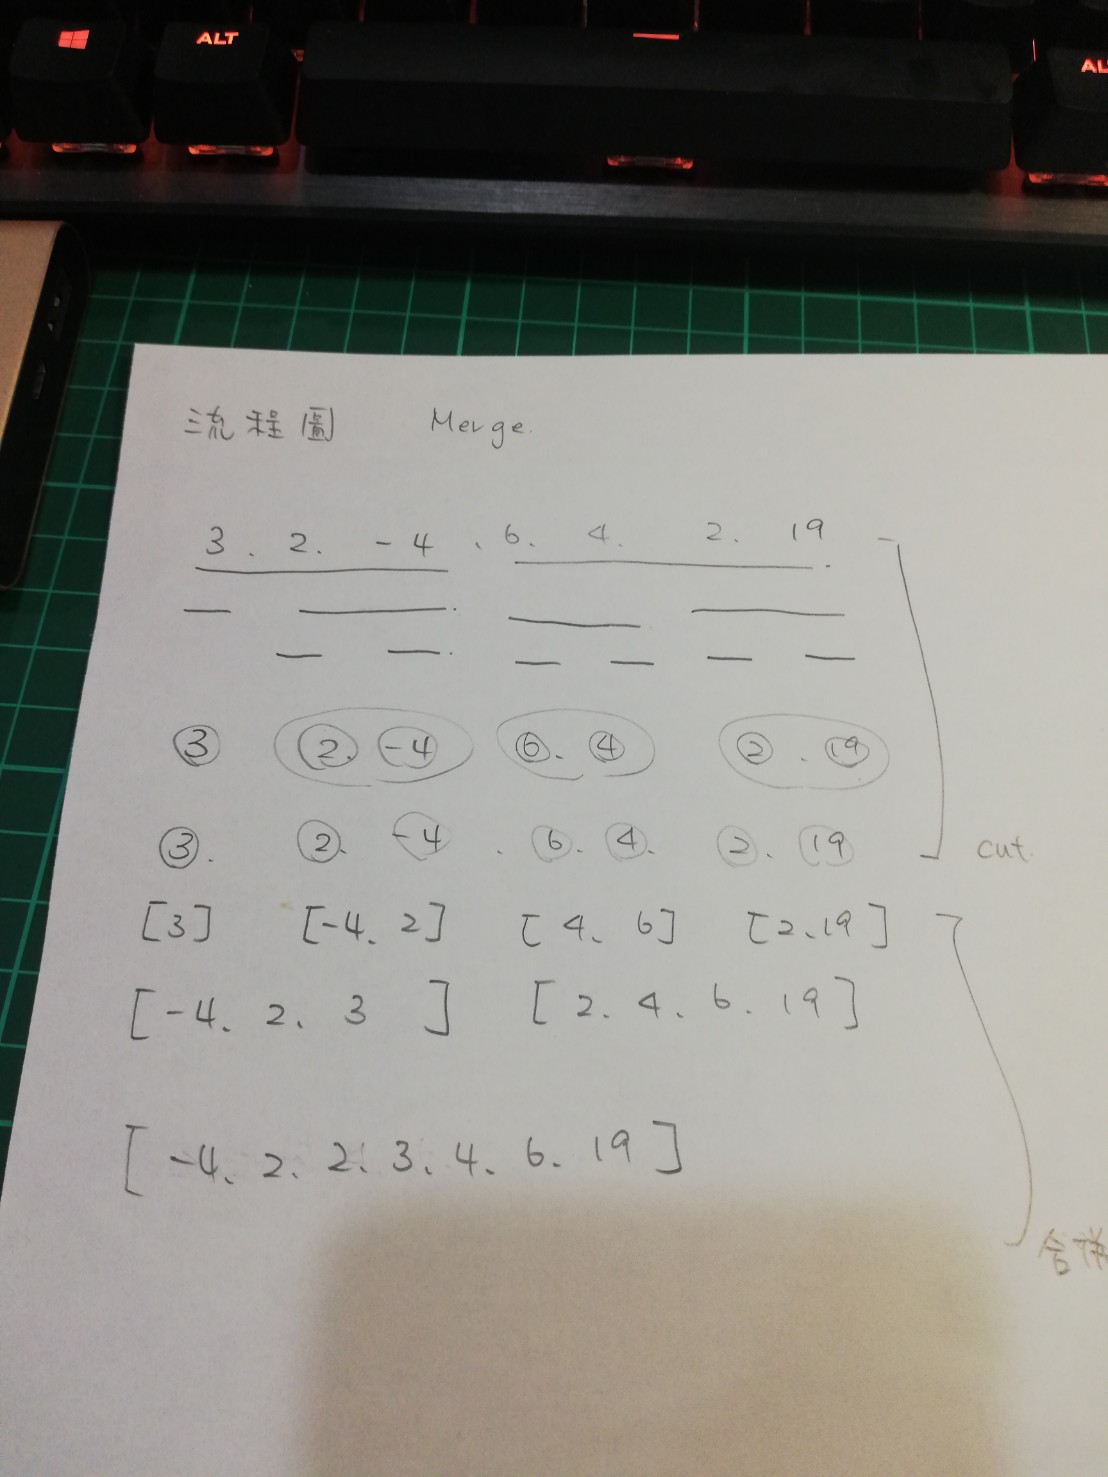 ALT
AL
流程圖 Merge.
3. 2. -4、6. 4. 2. 19
③ ②. -4 ⑥. ④ ② . ⑲
③. ②. -4 . ⑥. ④. ②. ⑲
cut.
[3] [-4、2] [4、6] [2、19]
[-4、2、3 ] [2、4、6、19]
[-4、2、2、3、4、6、19]
合併